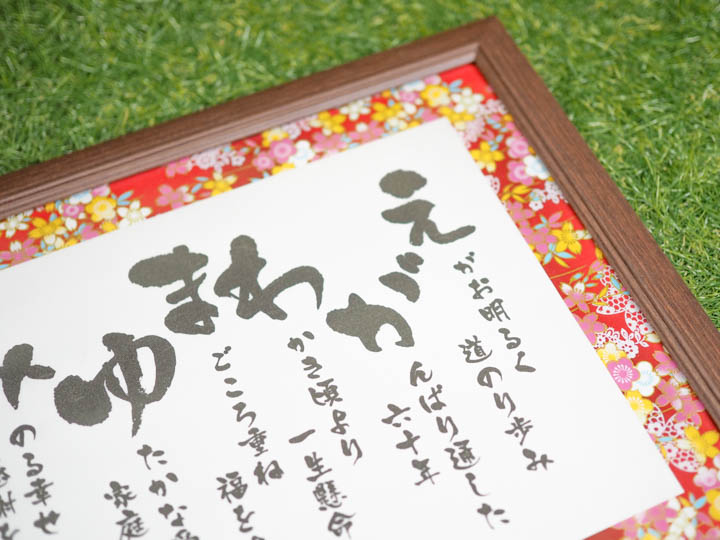 えがお明るく
道のり歩み
がんばり通した
六十年
わかき頃より
一生懸命
まごころ重ね
福を
ゆたかな
家庭
のる幸せ